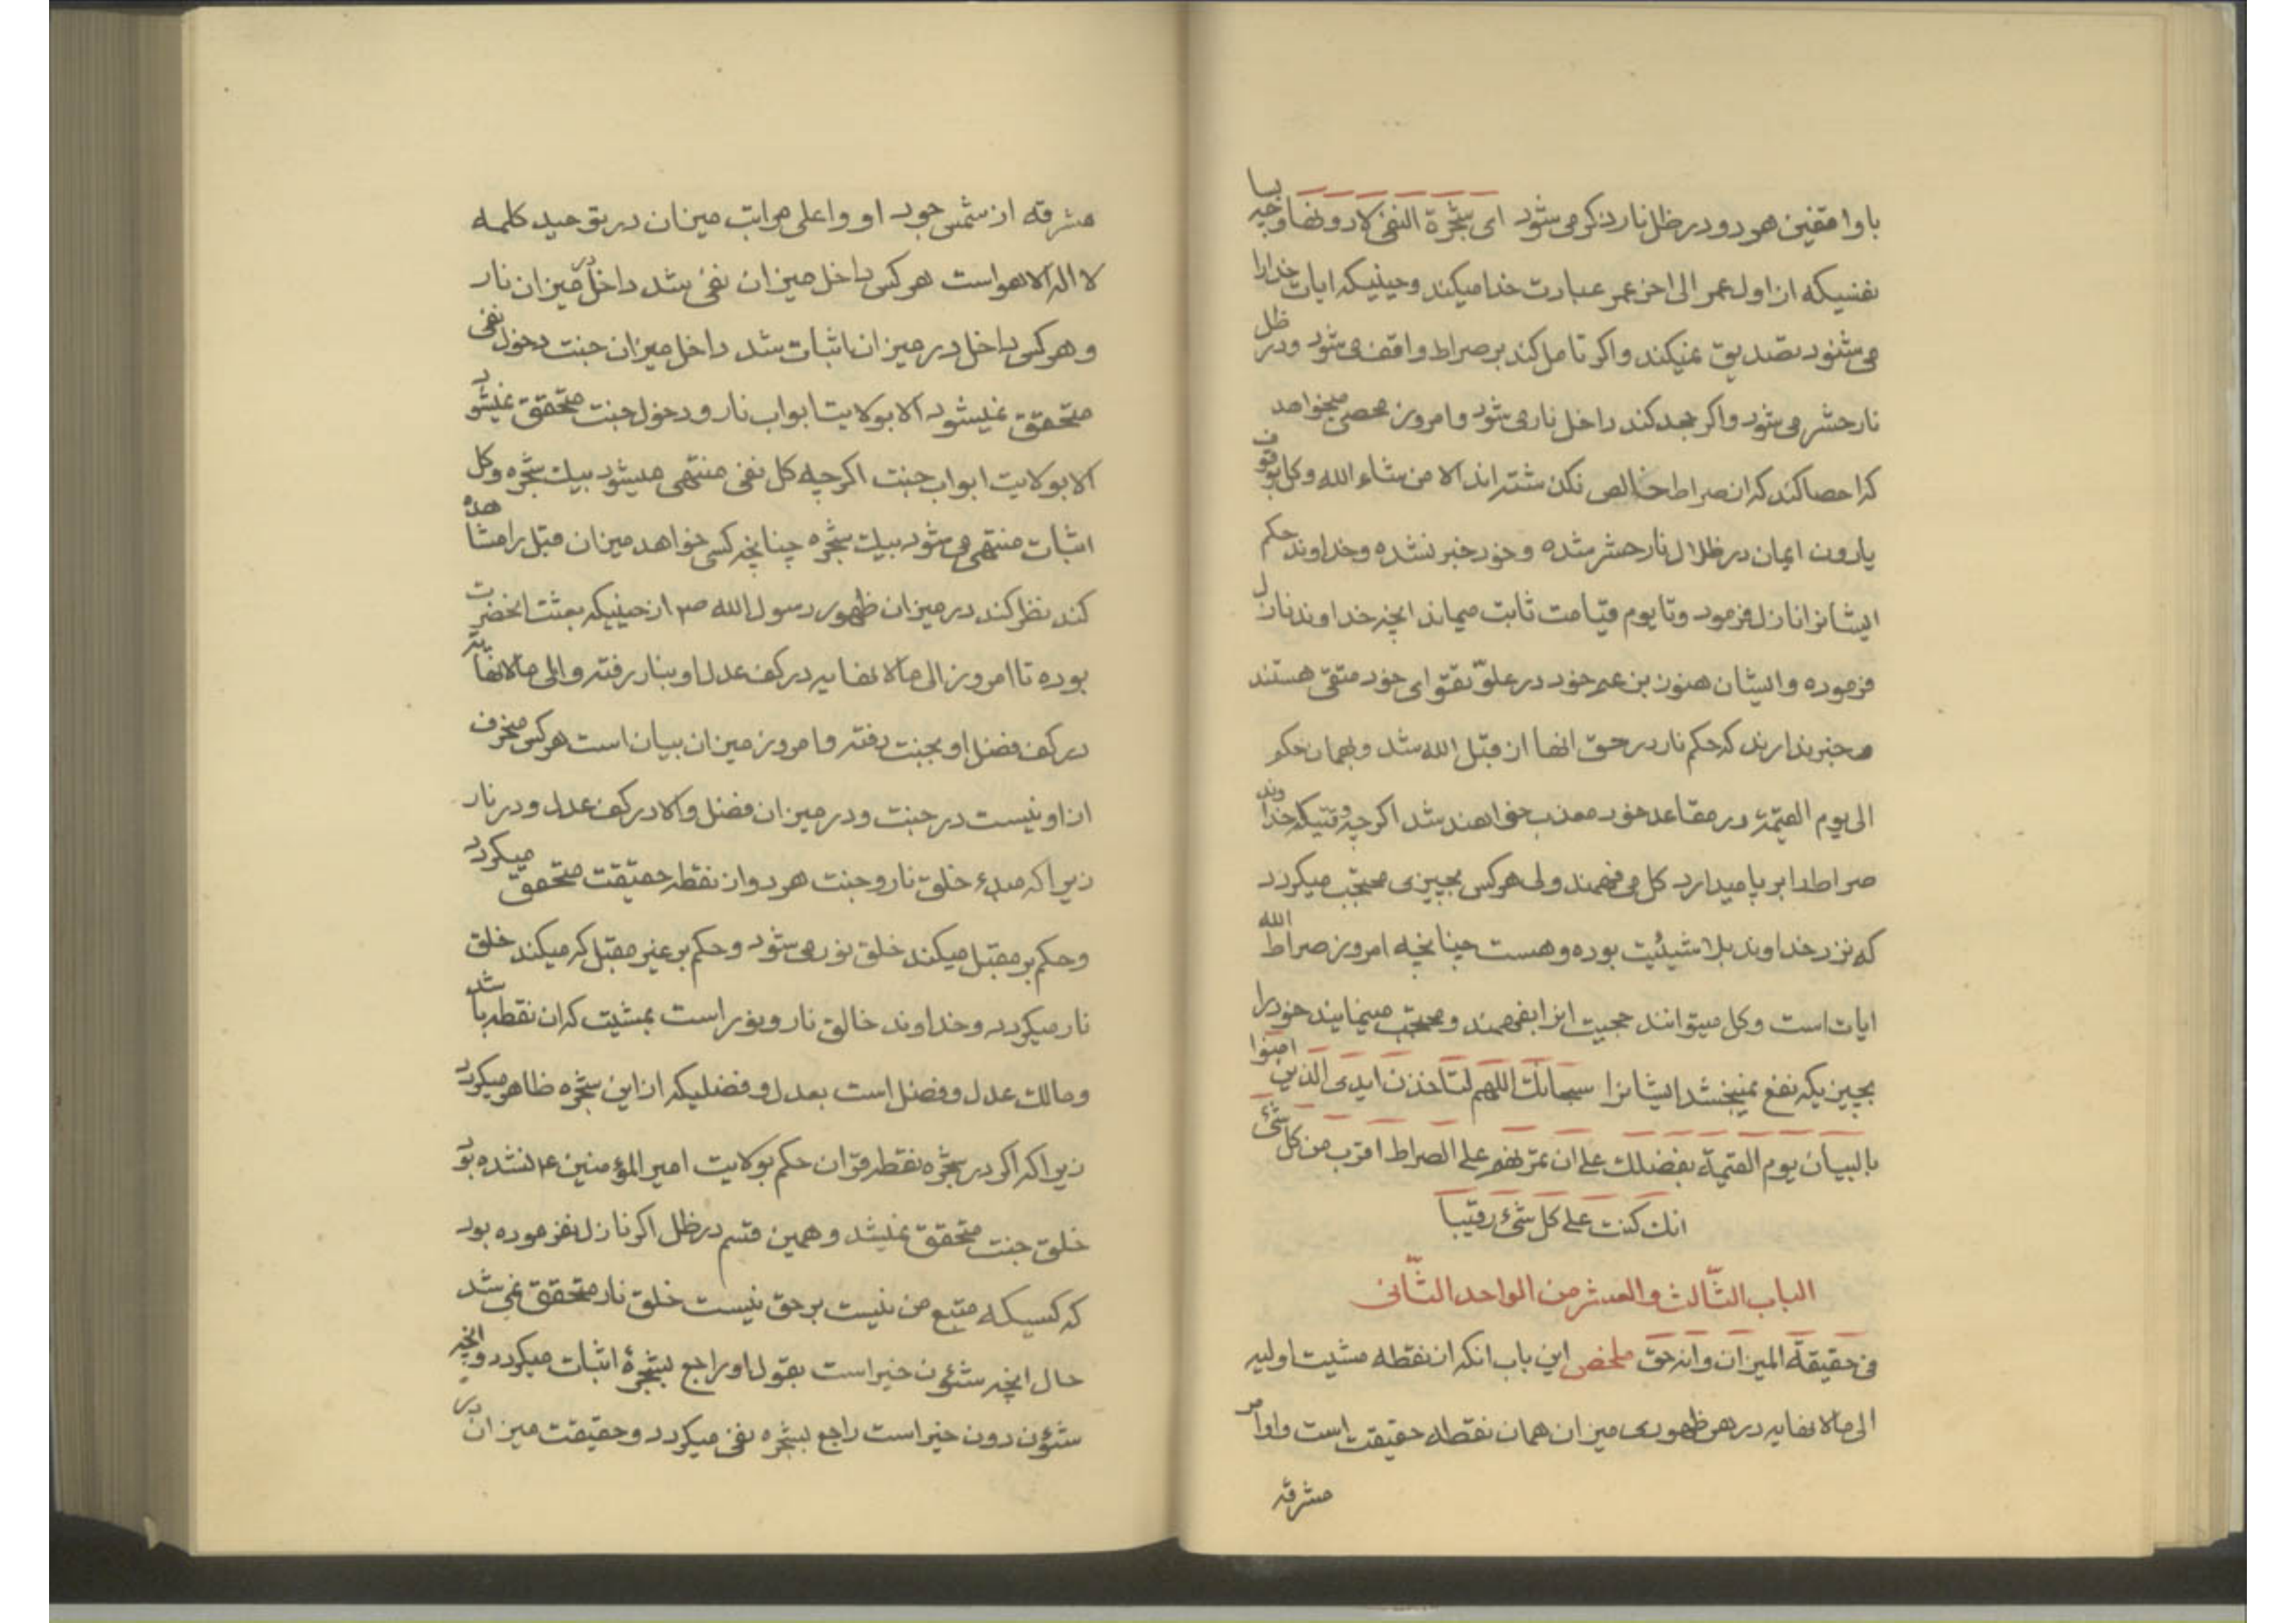 با واقفین هر دو در ظل نار ذکر می شود ای شجرة النفی لا دونها وچه بسا
نفسیکه از اول عمر الی اخر عمر عبادت خدا میکند وحینیکه ایات خدا را
می شنود تصدیق نمیکند واکر تامل کند بر صراط واقف می شود ودر ظل
نار حشر می شود واکر جحد کند داخل نار می شود وامروز محصی میخواهد
که احصا کند که از صراط خالص نکذشته اند الا من شاء الله وکل بوقوف
یا دون ایمان در ظلال نار حشر شده وخود خبر نشده وخداوند حکم
ایشانرا نازل فرمود وتا یوم قیامت ثابت میماند انچه خداوند نازل
فرموده وایشان هنوز بزعم خود در علو تقوای خود متقی هستند
وخبر ندارند که حکم نار در حق انها از قبل الله شد وبهمان حکم
الی یوم القیمة در مقاعد خود معذب خواهند شد اکرچه وقتیکه خداوند
صراط را بر پا میدارد کل می فهمند ولی هر کس بچیزی محتجب میکردد
که نزد خداوند بلا شیئیت بوده وهست چنانچه امروز صراط الله
ایات است وکل میتوانند حجیت انرا بفهمند ومحتجب مینمایند خود را
بچیزیکه نفع نمیبخشد ایشانرا سبحانك اللهم لتاخذن ایدی الذین امنوا
بالبیان یوم القیمة بفضلك علی ان تمرنهم علی الصراط اقرب من کل شیٔ
انك کنت علی کل شیٔ رقیبا
الباب الثالث والعشر من الواحد الثانی
فی حقیقة المیزان وانه حق ملخص این باب انکه ان نقطه مشیت اولیه
الی ما لا نهایه در هر ظهوری میزان همان نقطه حقیقت است واوامر
مشرقه
مشرقه از شمس جود او واعلی مراتب میزان در توحید کلمه
لا اله الا هو است هر کس داخل میزان نفی شد داخل در میزان نار
وهر کس داخل در میزان اثبات شد داخل میزان جنت دخول نفی
متحقق نمیشود الا بولایت ابواب نار ودخول جنت متحقق نمیشود
الا بولایت ابواب جنت اکرچه کل نفی منتهی میشود بیك شجره وکل
اثبات منتهی می شود بیك شجره چنانچه کسی خواهد میزان قبل را مشاهده
کند نظر کند در میزان ظهور رسول الله ص از حینیکه بعثت انحضرت
بوده تا امروز الی ما لا نهایه در کف عدل او بنار رفته والی ما لا نهایه
در کف فضل او بجنت رفته وامروز میزان بیان است هر کس منحرف
از او نیست در جنت ودر میزان فضل والا در کف عدل ودر نار
زیرا که مبدء خلق نار وجنت هر دو از نقطه حقیقت متحقق میکردد
وحکم بر مقبل میکند خلق نور می شود وحکم بر غیر مقبل که میکند خلق
نار میکردد وخداوند خالق نار ونور است بمشیت که ان نقطه باشد
ومالك عدل وفضل است بعدل وفضلیکه از این شجره ظاهر میکردد
زیرا که اکر در شجره نقطه فرقان حکم بولایت امیر المؤمنین ع نشده بود
خلق جنت متحقق نمیشد وهمین قسم در ظل اکر نازل نفرموده بود
که کسیکه متبع من نیست بر حق نیست خلق نار متحقق نمی شد
حال انچه شئون خیر است بقول او راجع بشجرهٔ اثبات میکردد وانچه
شئون دون خیر است راجع بشجره نفی میکردد وحقیقت میزان در